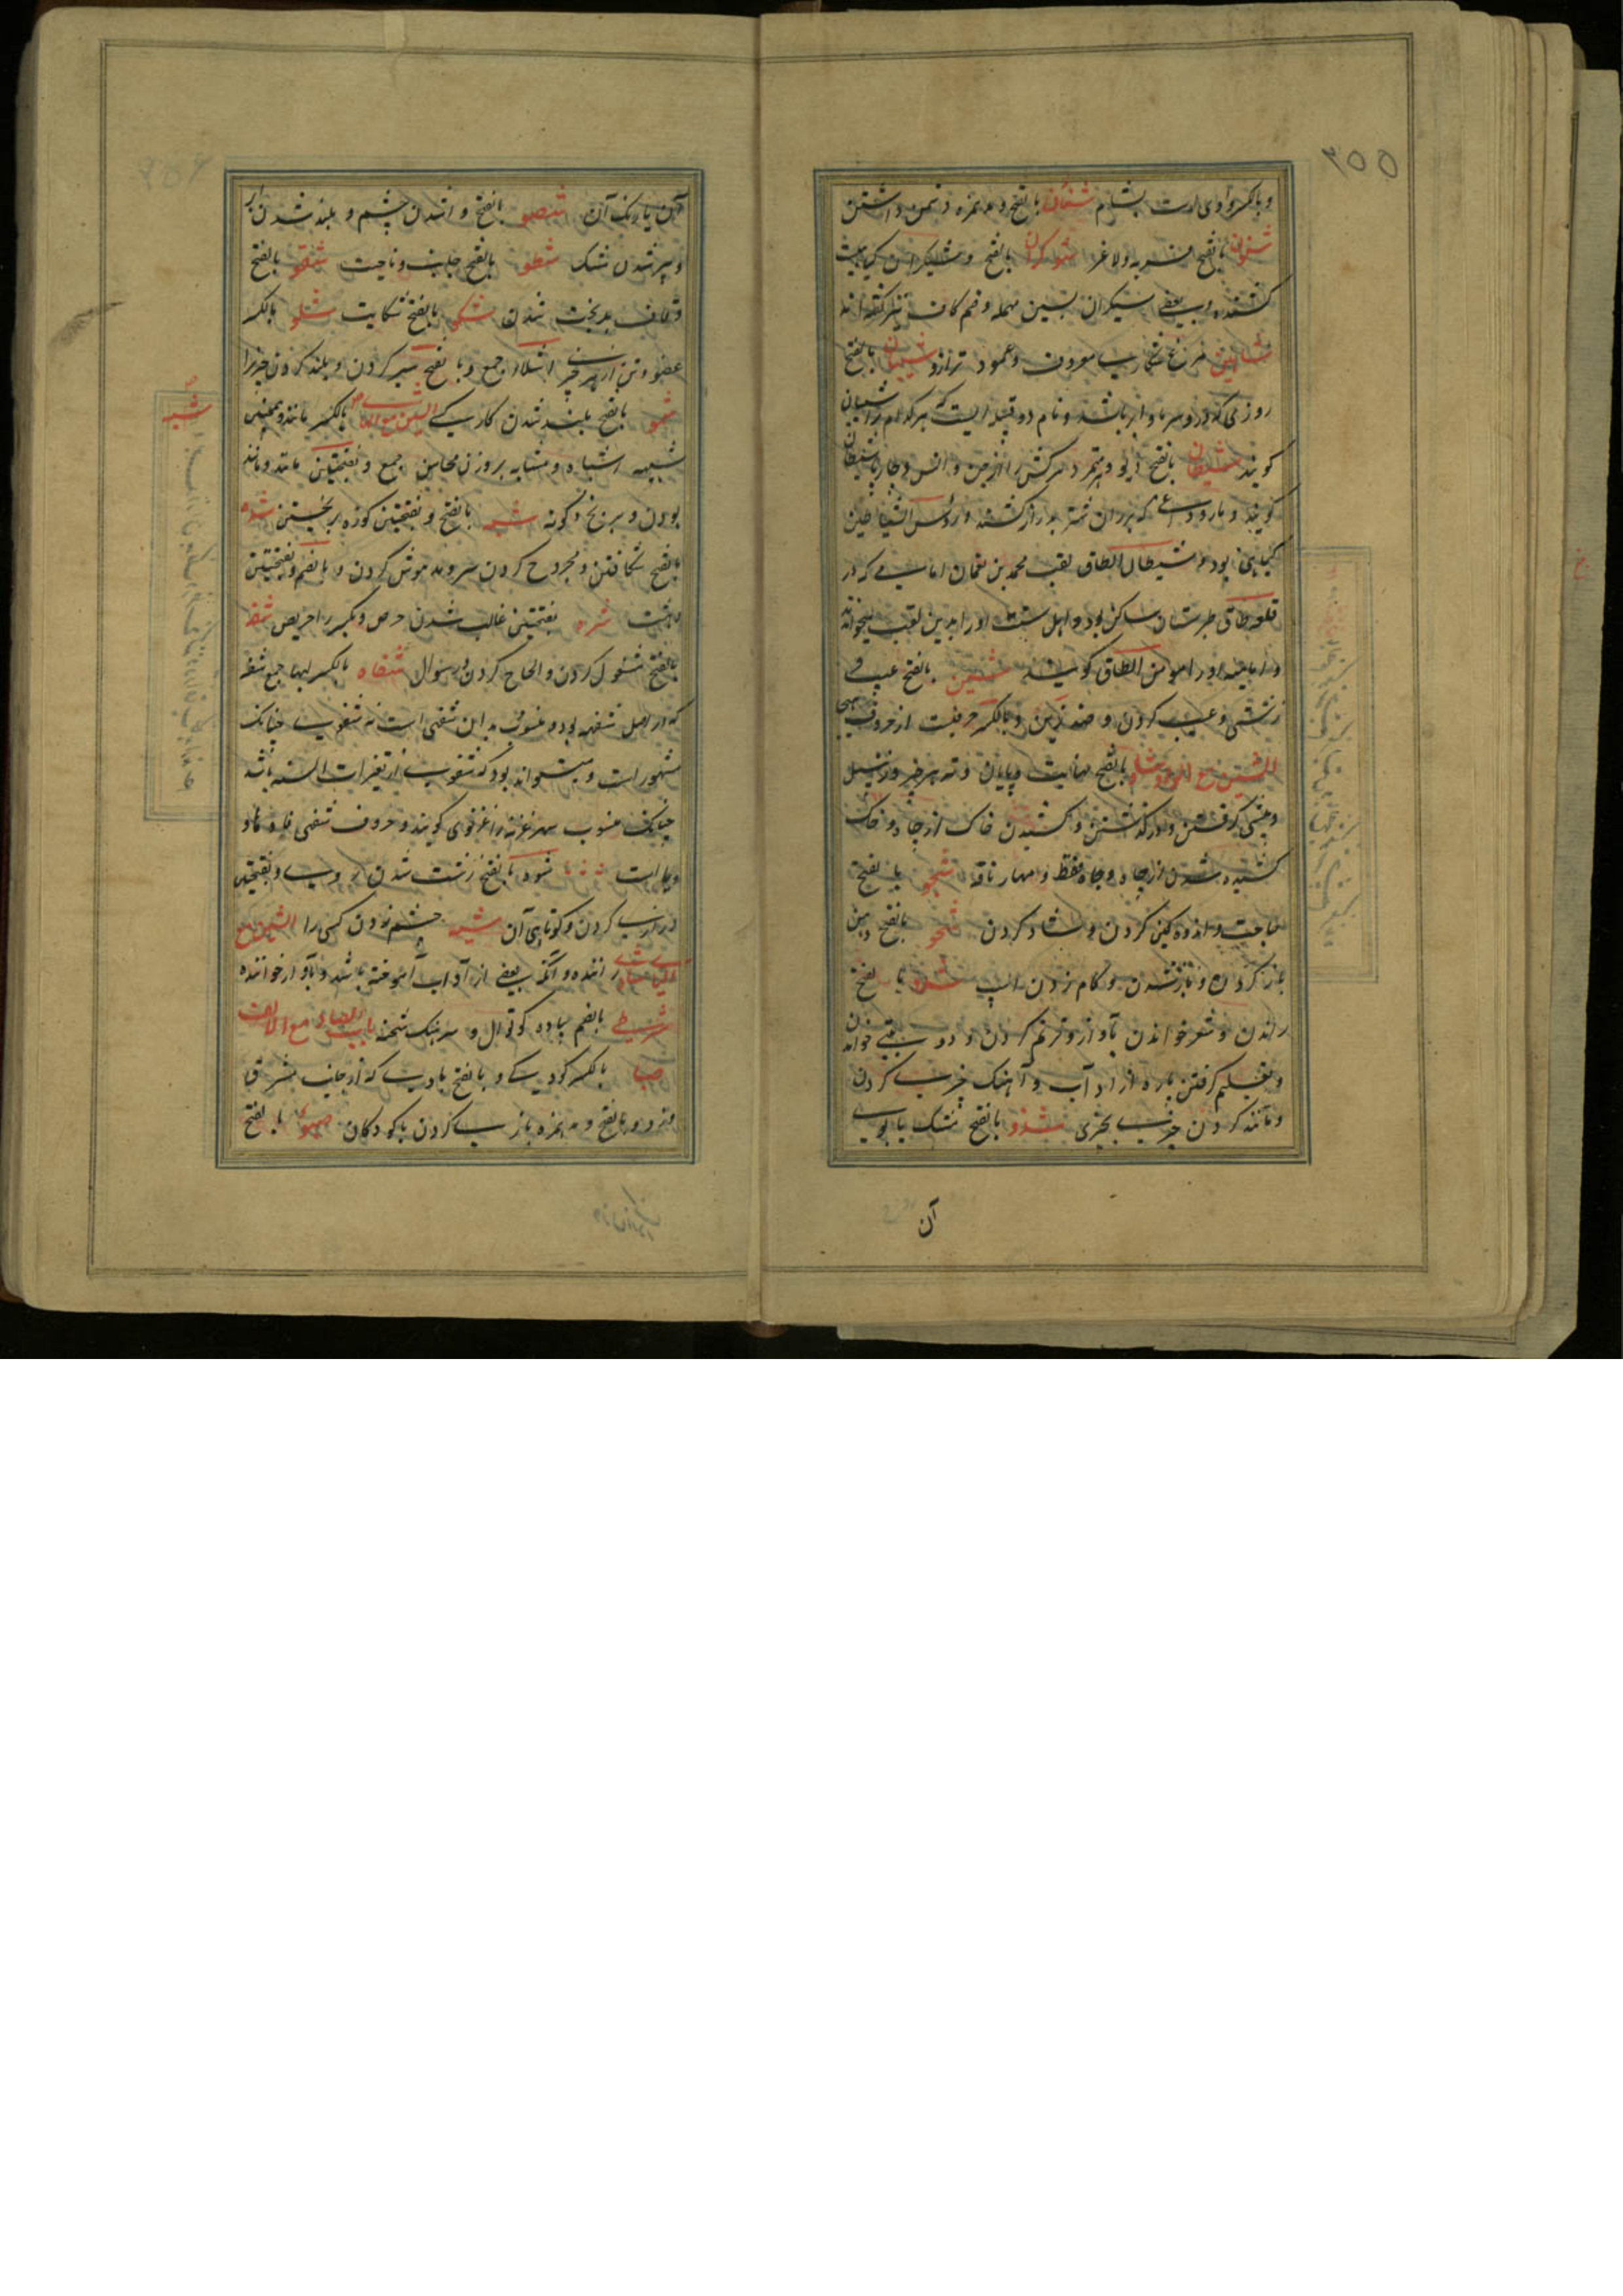 ۲۵۵
و بالکسر وادی است بشام شنئان بالفتح و مد همزه دشمن داشتن
شنون بالفتح فربه و لاغر شوکران بالفتح و شیکران گیاهیست
کشنده و بعضی سیکران بسین مهمله و ضم کاف نیز گفته‌اند
شاهین مرغ شکاری معروف و عمود ترازو شیبان بالفتح
روزی که در و سرما و ابر باشد و نام دو قبیله ایست که هر کدام را شیبان
کویند شیطان بالفتح دیو و متمرد و سرکش را از جن و انس و
کویند و مار و داغی که بر ران شتر بدرازکشند و رؤس الشیاطین
کیاهی بود و شیطان الطاق لقب محمد بن نعمان امامی که در
قلعه طاق طبرستان ساکن بود و اهل سنت او را بدین لقب میخوانند
و امامیه او را مومن الطاق کویند شین بالفتح عیب و
زشتی و عیب کردن و ضد زین و بالکسر حرفیست از حروف تهجی
الشین مع الواو شاو بالفتح نهایت و پایان و ته هر چیز و زنبیل
و پیشی کرفتن و درگذشتن و کشیدن خاک از چاه و خاک
کشیده شده از چاه و چاه فقط و مهار ناقه شجو بالفتح
حاجت و اندوهگین کردن و شاد کردن شحو بالفتح دهن
باز کردن و باز شدن و کام زدن اسپ شدو بالفتح
راندن و شعر خواندن بآواز و ترنم کردن و دو بیتی خواندن
و تعلیم کرفتن پاره از ادآب و آهنک چیزی کردن
و مانند کردن چیزی بچیزی شذو بالفتح مشک یا بوی
آن
آن یا رنک آن شصو بالفتح وا شدن چشم و بلند شدن ابر
و پر شدن مشک شطو بالفتح جانب و ناحیت شقو بالفتح
و قاف بدبخت شدن شکو بالفتح شکایت شلو بالکسر
عضو و تن از هر چیز اشلاء جمع و بالفتح سیر کردن و بلند کردن چیزرا
شمو بالفتح بلند شدن کار کسی الشین مع الهاء شبه بالکسر مانند و همچنین
شبیه اشباه و مشابه بروزن محاسن جمع و بفتحتین مانند و مانند
بودن و برنج و کونه شبه بالفتح و بفتحتین کوزه برنجین شده
بالفتح شکافتن و مجروح کردن سر و مدهوش کردن و بالضم و بفتحتین
دهشت شره بفتحتین غالب شدن حرص و بکسر را حریص شفه
بالفتح مشغول کردن و الحاح کردن در سوال شفاه بالکسر لبها جمع شفه
که در اصل شفهه بوده و منسوب به این شفهی است نه شفوی چنانکه
مشهور است و میتواند بود که شفوی از تغیرات السنه باشد
چنانکه منسوب بهر غزنه را غزنوی کویند و حروف شفهی فا و با و
و میم است شوه بالفتح زشت شدن روی و بفتحتین
درازی کردن و کوتاهی آن شیه چشم زدن کسی را الشین مع
الیاء شادی راننده و آنکه بعضی از آداب آموخته باشد و بآواز خواننده
شرطی بالضم پیاده کوتوال و سرهنک شحنه باب الصاد مع الالف
صبا بالکسر کودکی و بالفتح بادیست که از جانب مشرق
وزد و بالفتح و مد همزه بازی کردن با کودکان صبوء بالفتح